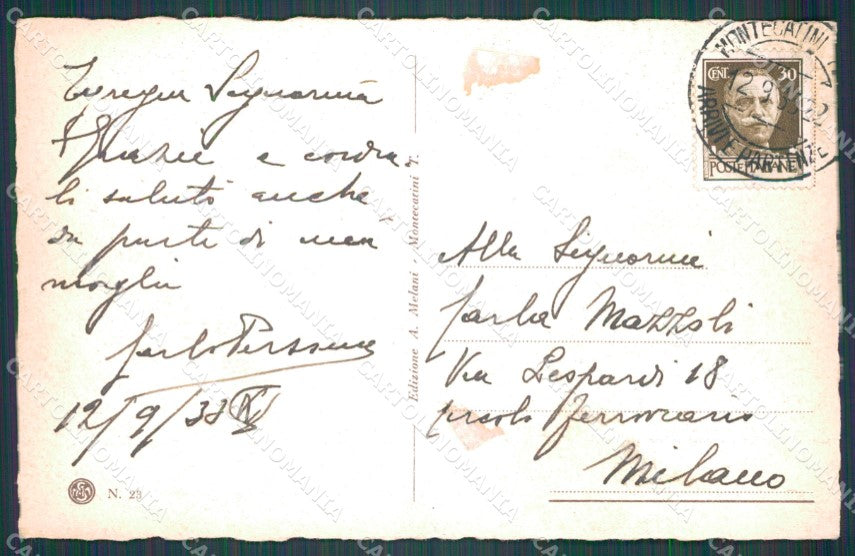 Egregia Signorina
Grazie e cordia-
li saluti anche
da parte di mia
moglie
Carlo
12/9/33 XI
N. 23
Edizione A. Melani - Montecatini T.
MONTECATINI
12.9. 22
ARRIVI E PARTENZE
CENT. 30
POSTE ITALIANE
Alla Signorina
Carla Mazzoli
Via Leopardi 18
ferroviario
Milano
CARTOLINOMANIA